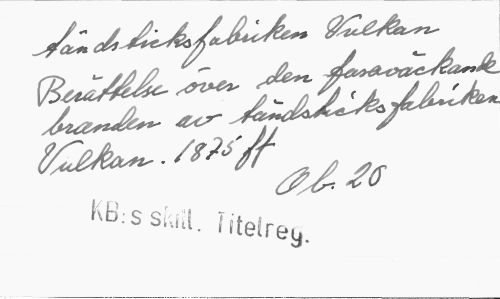 tändsticksfabriken Vulkan
Berättelse över den fasaväckande
branden av tändsticksfabriken
Vulkan. 1875 ff
Ob. 20
KB:s skill. Titelreg.